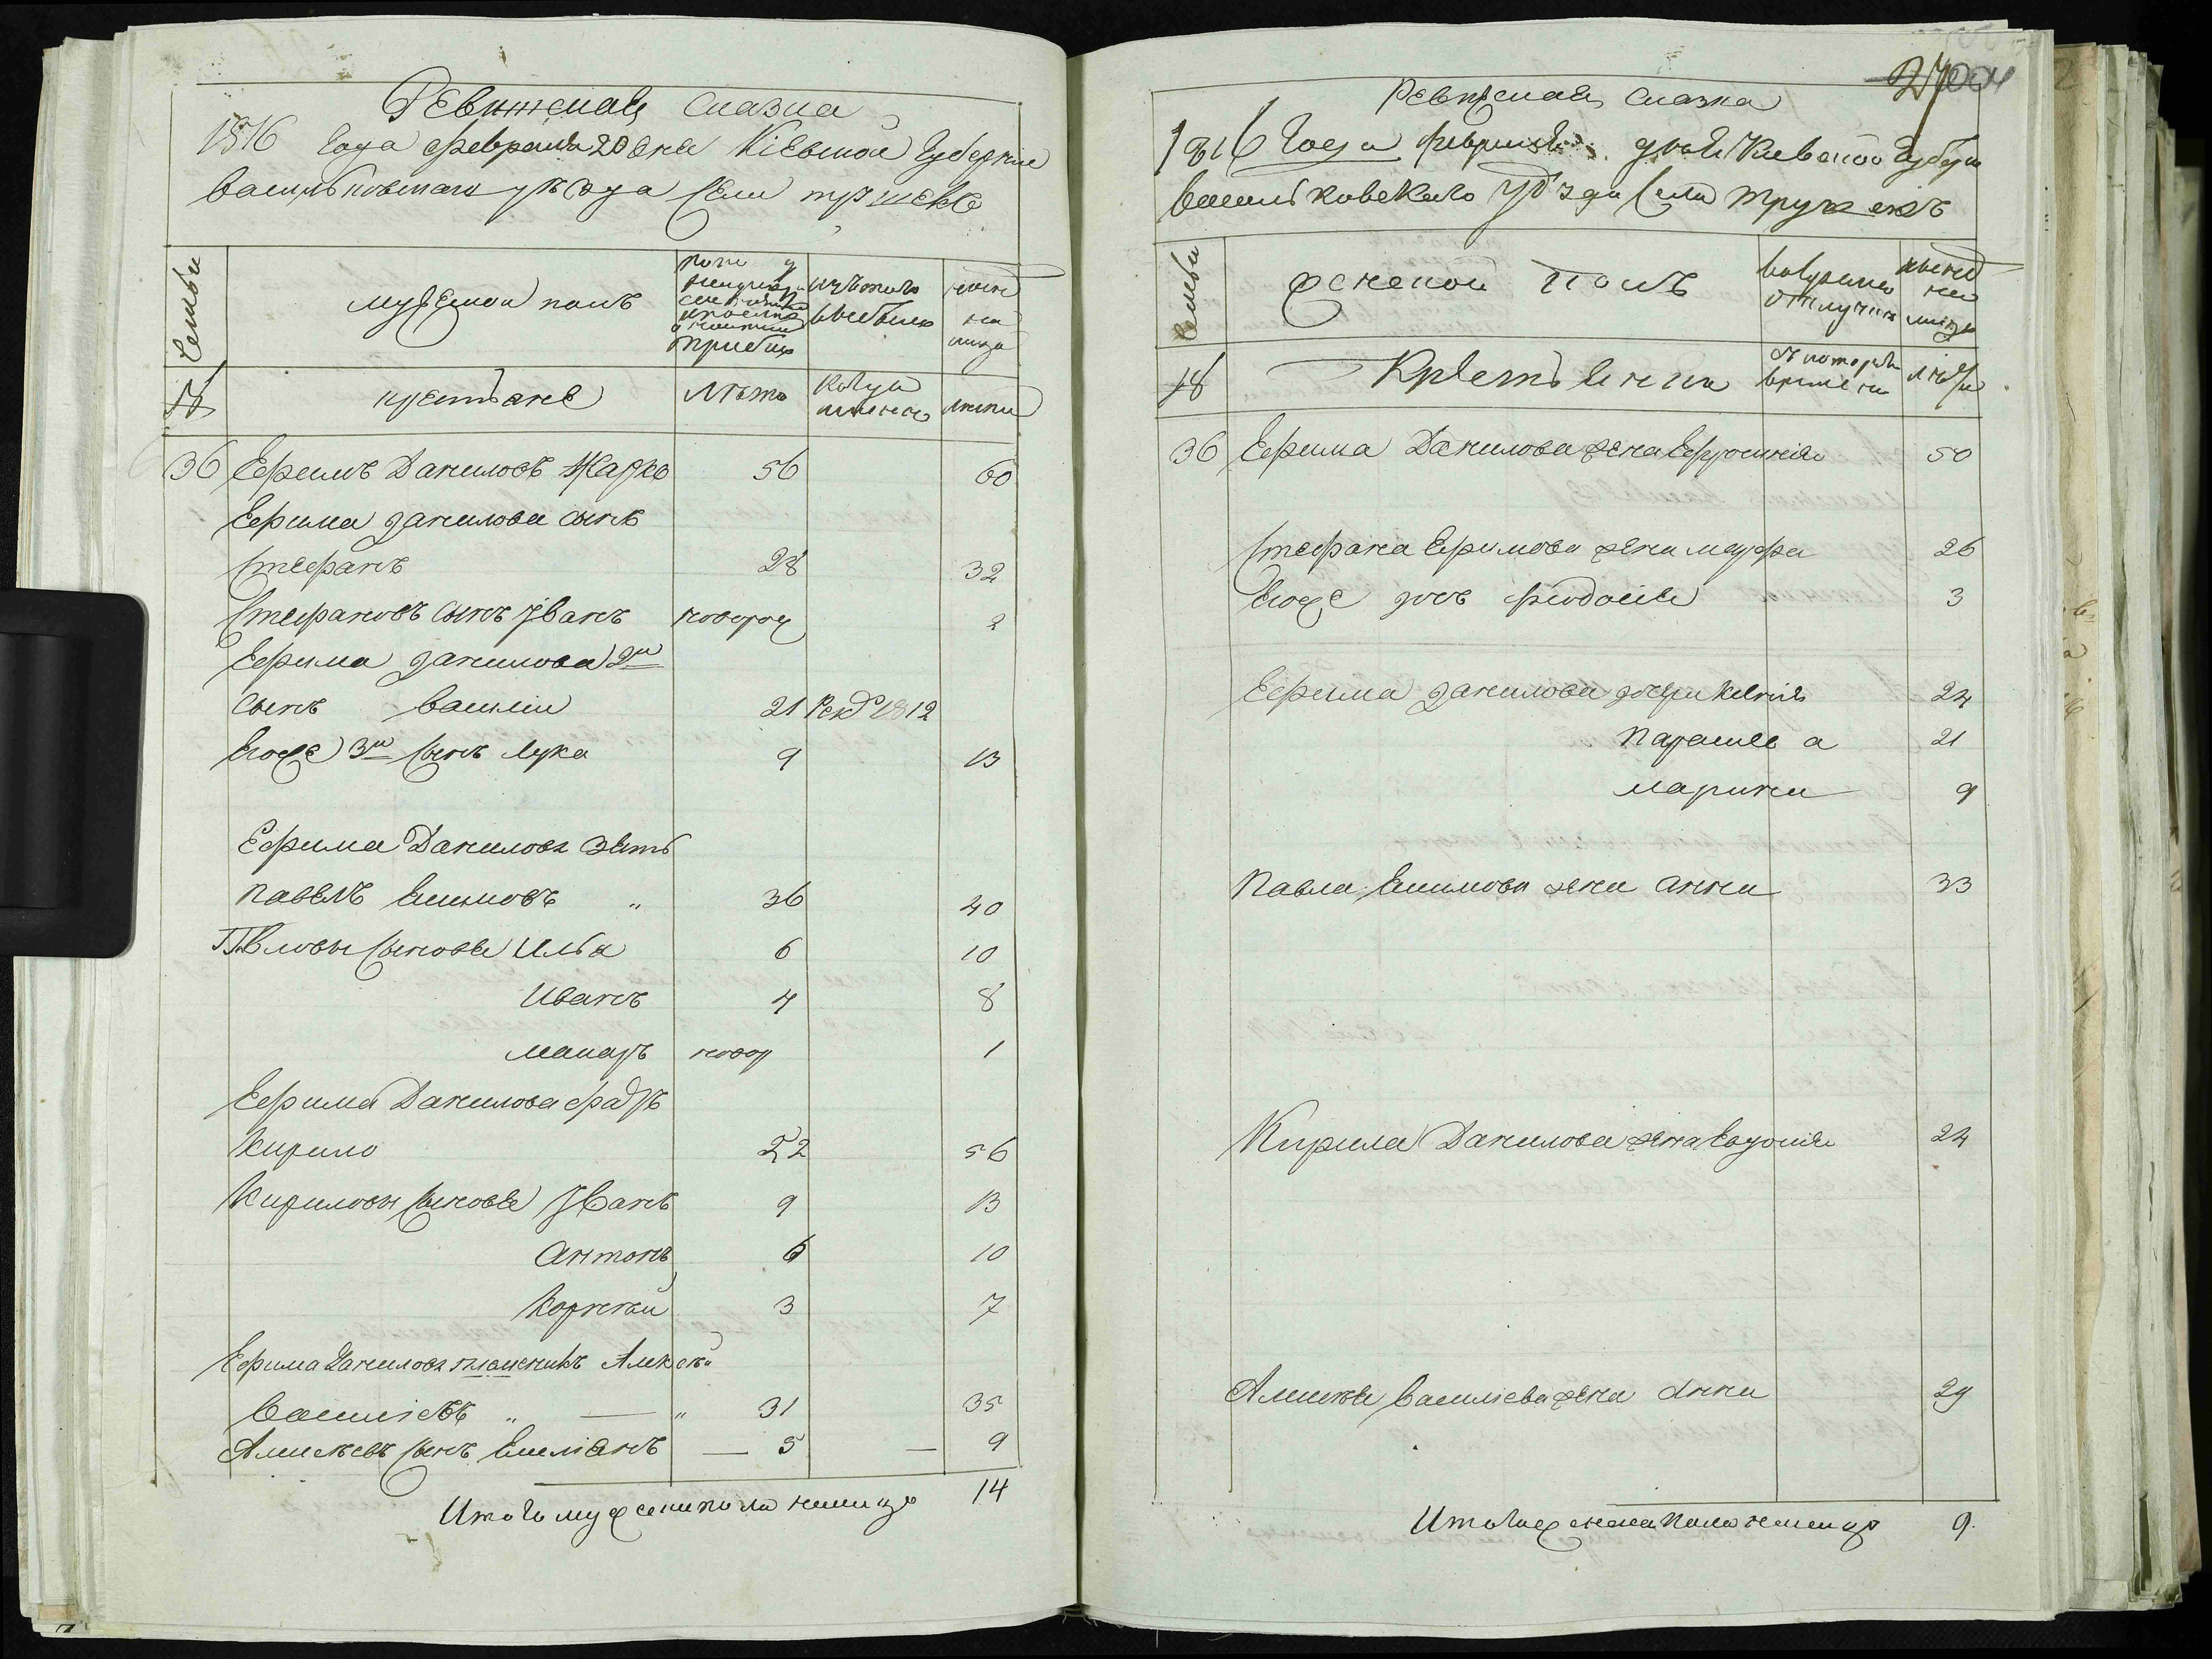 Ревижская сказка
1816 года февраля 20 дня Кіевской Губерніи
васильковскаго уѣзда Села трушекъ
Семьи
мужеской полъ
По последней ревизіи состояло и после оной прибыло
изъ того числа выбыло
ныне на лицо
крестьяне
Лѣта
когда именно
лѣта
36 Ефимъ Даниловъ Жарко 56 60
Ефима данилова сынъ
Стефанъ 28 32
Стефановъ сынъ Іванъ новорож 2
Ефима данилова 2й
сынъ василій 21 Рекр 1812
Егоже 3й сынъ лука 9 13
Ефима Данилова зять
павелъ Екимовъ " 36 40
Павловы Сыновья Илья 6 10
Иванъ 4 8
макаръ новор 1
Ефима Данилова братъ
Кирило 52 56
Кириловы Сыновья Іванъ 9 13
Антонъ 6 10
Корней 3 7
Ефима Данилова племеникъ Алексѣй
василіевъ " — " 31 35
Алексѣевъ сынъ Емеліанъ — 5 — 9
Итого мужеска пола налицо 14
27
Ревижская сказка
1816 Года февраля дня Киевской Губерн
васильковскаго уѣзда Села трушекъ
Семьи
женской полъ
во временной отлучкѣ
ныне на лицо
18
Крѣстьянки
съ котораго времени
лѣта
36 Ефима Данилова жена Ефросинія 50
Стефана Ефимова жена марфа 26
Егоже дочь феодосія 3
Ефима данилова дочери Ксенія 24
Параскева 21
марина 9
Павла Екимова жена анна 33
Кирила Данилова жена Евдокія 24
Алексѣя василіева жена Анна 29
Итого женска пола налицо 9